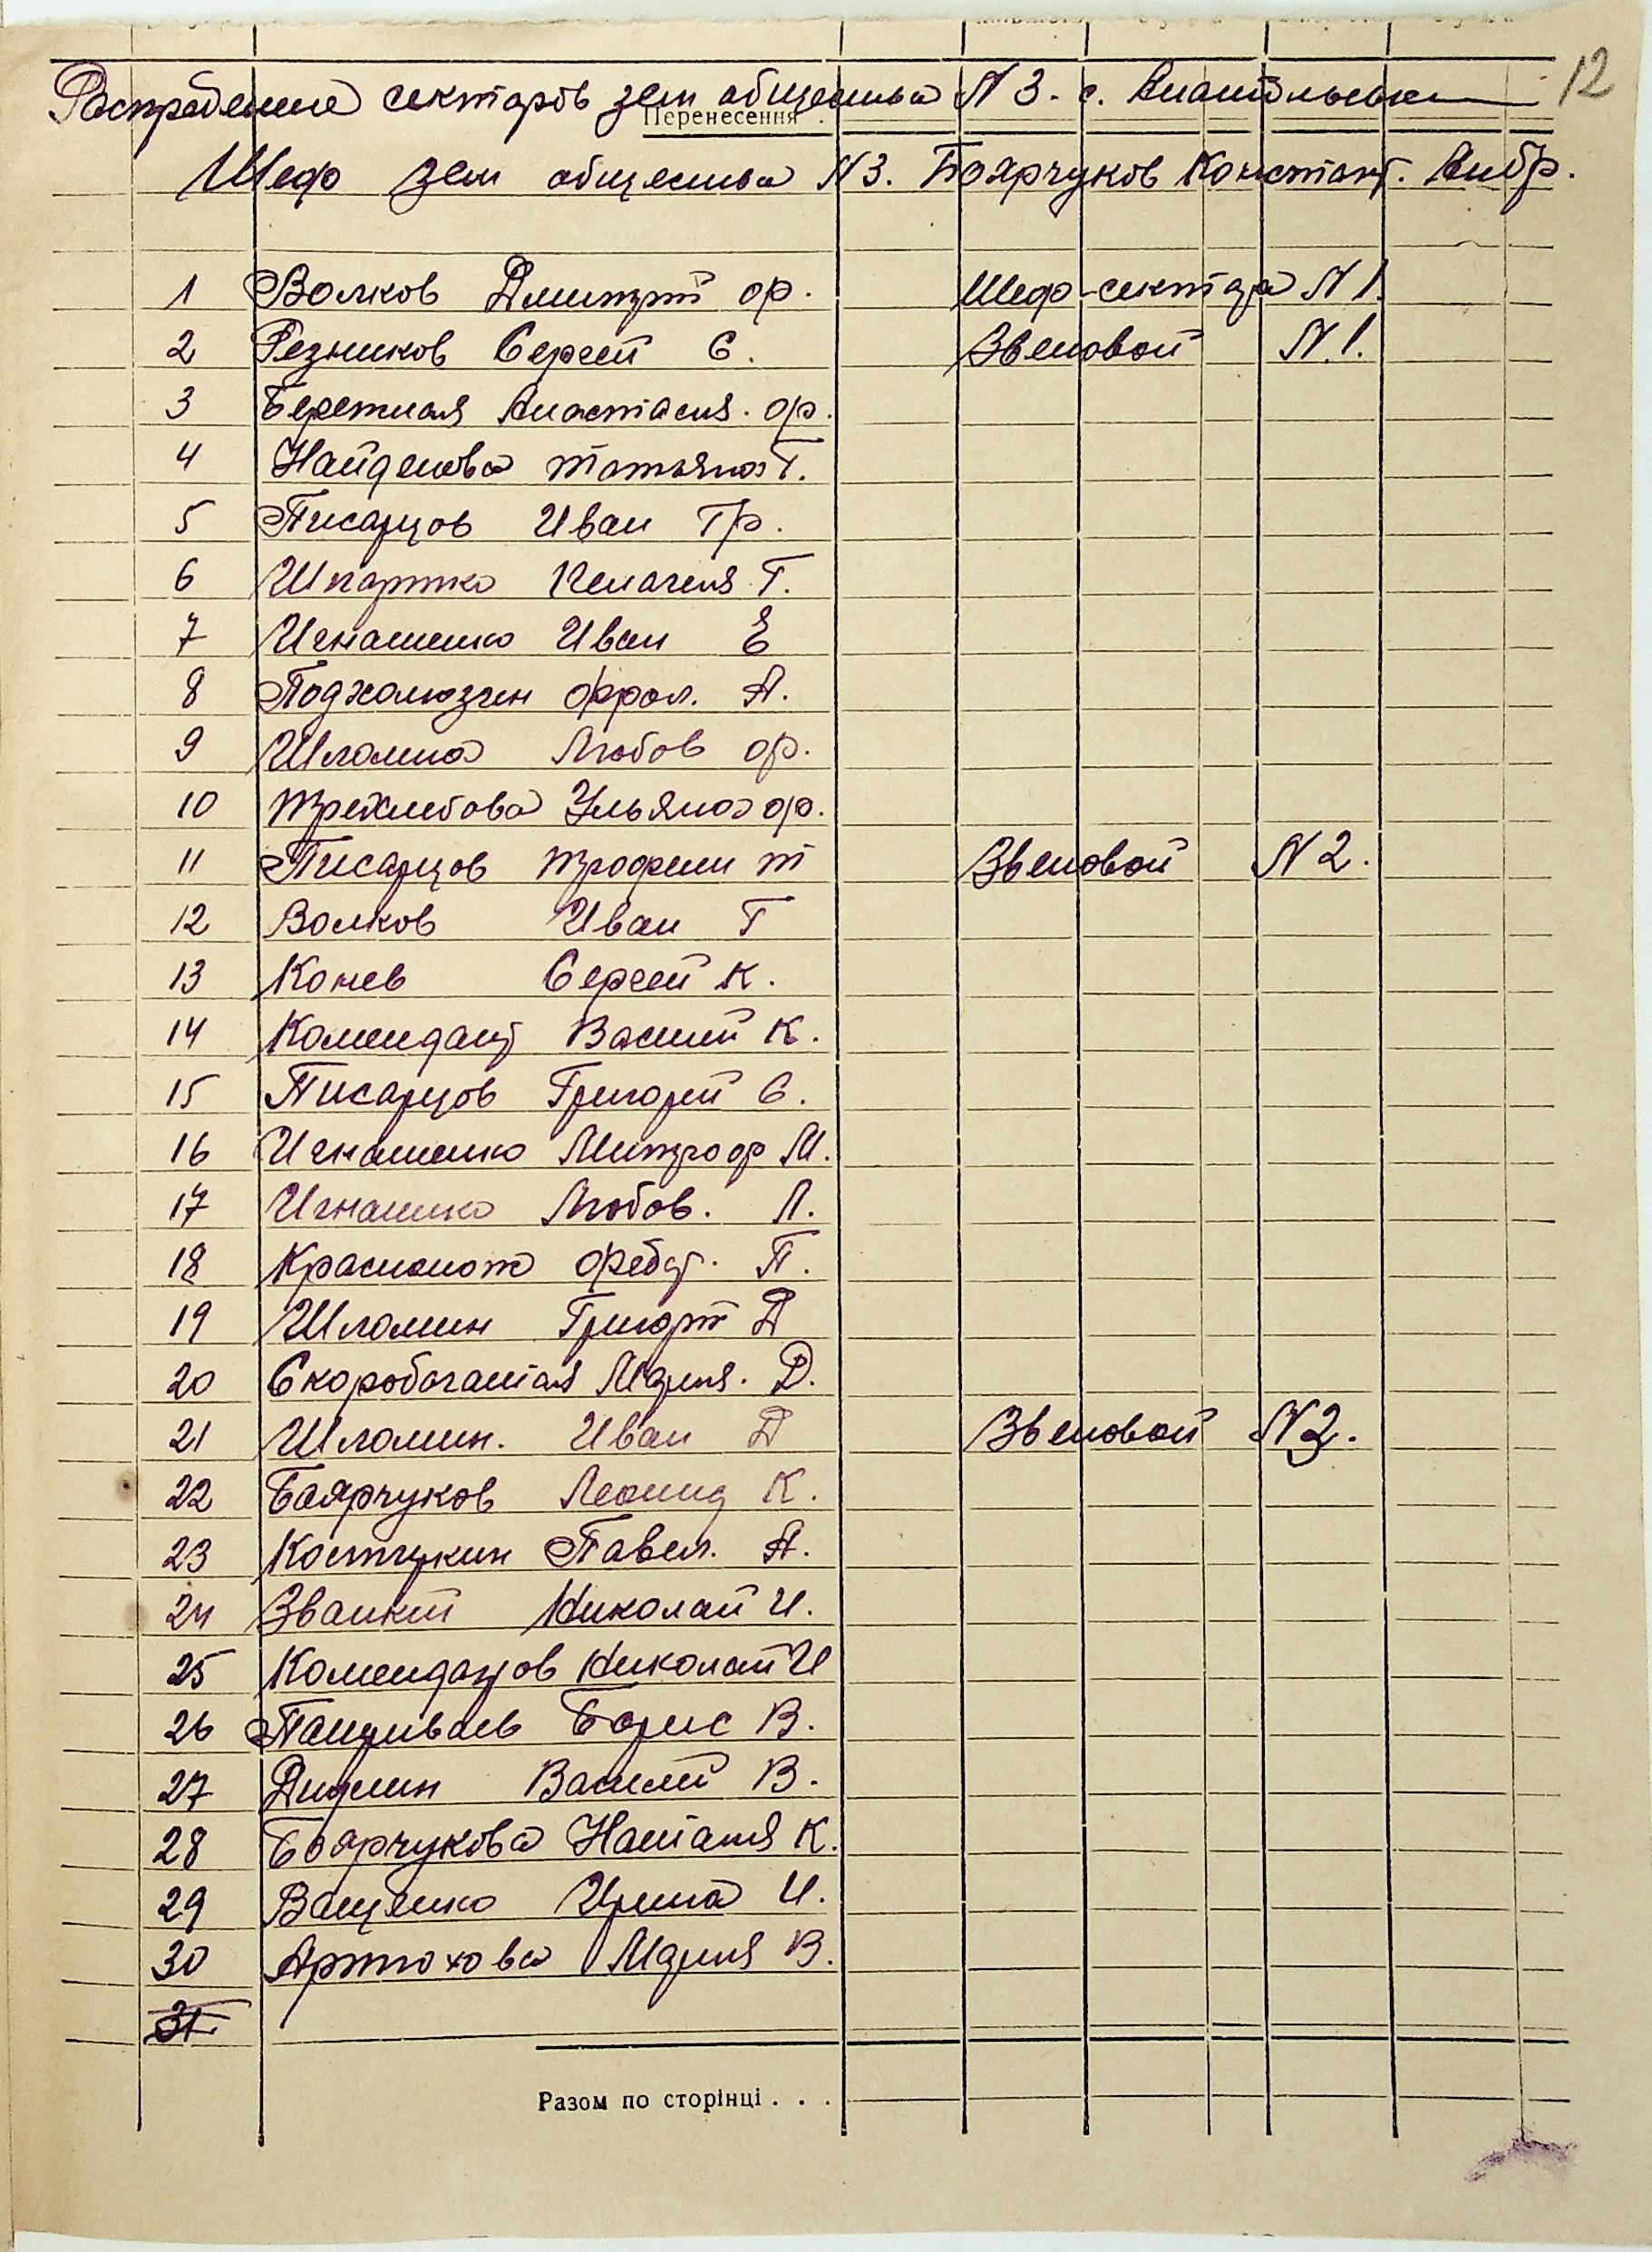 12
Распределение секторов зем общества N 3. с. Анатольевка
Перенесення .
Шеф зем общества N 3. Боярчуков Констант. Амбр.
1 Волков Дмитрий Ф. Шеф-сектора N 1.
2 Резников Сергей С. Звеновой N. 1.
3 Бережная Анастасия. Ф.
4 Найденова Татьяна Т.
5 Писарцов Иван Гр.
6 Шпартко Пелагея Т.
7 Игнашенко Иван Е
8 Подхолюзин Фрол. А.
9 Шломина Любов Ф.
10 Трехлебова Ульяна Ф.
11 Писарцов Трофим Т Звеновой N 2.
12 Волков Иван Г
13 Конев Сергей К.
14 Комендант Василий К.
15 Писарцов Григорий С.
16 Игнашенко Митроф М.
17 Игнашко Любов. Л.
18 Красножон Федот. П.
19 Шломин Григорий Д
20 Скоробогатая Мария. Д.
21 Шломин. Иван Д Звеновой N 3.
22 Боярчуков Леонид К.
23 Костюкин Павел. А.
24 Званкий Николай И.
25 Комендантов Николай И
26 Борис В.
27 Василий В.
28 Боярчукова Наталия К.
29 Ващенко Ирина И.
30 Артюхова Мария В.
31
Разом по сторінці . . .